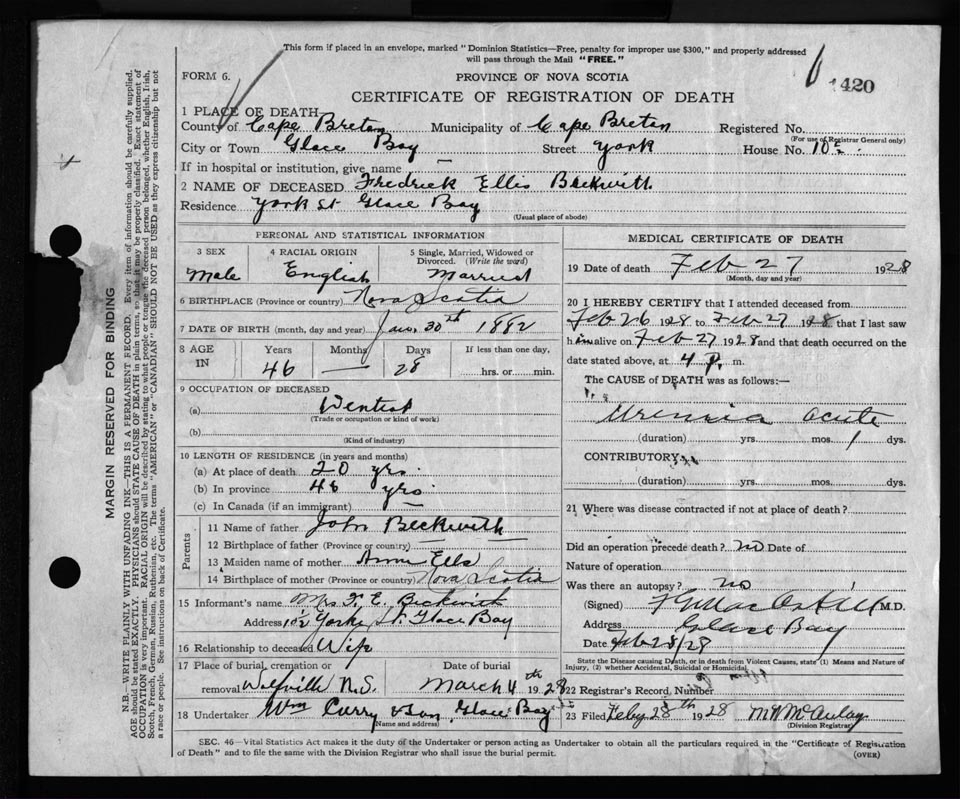 This form if placed in an envelope, marked "Dominion Statistics—Free, penalty for improper use $300," and properly addressed
will pass through the Mail "FREE."
FORM 6.
PROVINCE OF NOVA SCOTIA
1420
CERTIFICATE OF REGISTRATION OF DEATH
1 PLACE OF DEATH
County of Cape Breton Municipality of Cape Breton Registered No.
(For use of Registrar General only)
City or Town Glace Bay Street York House No. 102
If in hospital or institution, give name —
2 NAME OF DECEASED Fredrick Ellis Beckwith
Residence York St Glace Bay
(Usual place of abode)
PERSONAL AND STATISTICAL INFORMATION
3 SEX
Male
4 RACIAL ORIGIN
English
5 Single, Married, Widowed or
Divorced. (Write the word)
Married
6 BIRTHPLACE (Province or country) Nova Scotia
7 DATE OF BIRTH (month, day and year) Jan. 30th 1882
8 AGE IN
Years Months Days If less than one day,
46 — 28 hrs. or min.
9 OCCUPATION OF DECEASED
(a) Dentist
(Trade or occupation or kind of work)
(b)
(Kind of industry)
10 LENGTH OF RESIDENCE (in years and months)
(a) At place of death 20 yrs.
(b) In province 46 yrs.
(c) In Canada (if an immigrant) —
Parents
11 Name of father John Beckwith
12 Birthplace of father (Province or country) —
13 Maiden name of mother Annie Ells
14 Birthplace of mother (Province or country) Nova Scotia
15 Informant's name Mrs F. E. Beckwith
Address 102 York St. Glace Bay
16 Relationship to deceased Wife
17 Place of burial, cremation or Date of burial
removal Wolfville N.S. March 4th 1928
18 Undertaker Wm Curry & Son, Glace Bay
(Name and address)
MEDICAL CERTIFICATE OF DEATH
19 Date of death Feb 27 1928
(Month, day and year)
20 I HEREBY CERTIFY that I attended deceased from
Feb 26 1928 to Feb 27 1928 that I last saw
him alive on Feb 27 1928 and that death occurred on the
date stated above, at 4 P. m.
The CAUSE of DEATH was as follows:—
Uremia acute
(duration) yrs. mos. 1 dys.
CONTRIBUTORY
(duration) yrs. mos. dys.
21 Where was disease contracted if not at place of death?
Did an operation precede death? no Date of
Nature of operation
Was there an autopsy? no
(Signed) M.D.
Address Glace Bay
Date Feb 28/28
State the Disease causing Death, or in death from Violent Causes, state (1) Means and Nature of
Injury, (2) whether Accidental, Suicidal or Homicidal.
22 Registrar's Record Number
23 Filed Feby 28th 1928 McAulay
(Division Registrar)
SEC. 46—Vital Statistics Act makes it the duty of the Undertaker or person acting as Undertaker to obtain all the particulars required in the "Certificate of Registration
of Death" and to file the same with the Division Registrar who shall issue the burial permit.
(OVER)
MARGIN RESERVED FOR BINDING
N.B.—WRITE PLAINLY WITH UNFADING INK—THIS IS A PERMANENT RECORD. Every item of information should be carefully supplied.
AGE should be stated EXACTLY. PHYSICIANS should STATE CAUSE OF DEATH in plain terms, so that it may be properly classified. Exact statement of
OCCUPATION is very important. RACIAL ORIGIN will be described by stating to what people or tongue the deceased person belonged, whether English, Irish,
Scotch, French, German, Russian, Ruthenian, etc. The terms "AMERICAN" or "CANADIAN" SHOULD NOT BE USED as they express citizenship but not
a race or people. See instructions on back of Certificate.